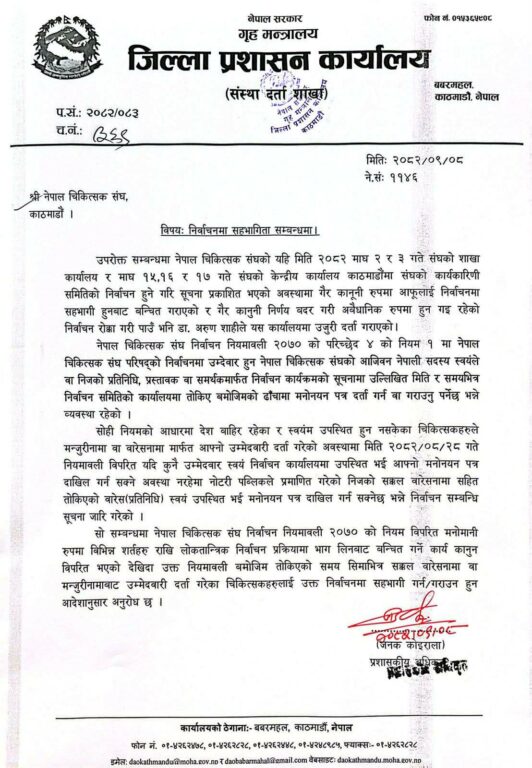 नेपाल सरकार
फोन नं. ०१५३६५९०८
गृह मन्त्रालय
जिल्ला प्रशासन कार्यालय
(संस्था दर्ता शाखा)
बबरमहल,
काठमाडौं, नेपाल
प.सं.: २०८२/०८३
च.नं.:
मितिः २०८२/०९/०८
ने.सं: ११४६
श्री नेपाल चिकित्सक संघ,
काठमाडौं ।
विषयः निर्वाचनमा सहभागिता सम्बन्धमा।
उपरोक्त सम्बन्धमा नेपाल चिकित्सक संघको यहि मिति २०८२ माघ २ र ३ गते संघको शाखा
कार्यालय र माघ १५,१६ र १७ गते संघको केन्द्रीय कार्यालय काठमाडौंमा संघको कार्यकारिणी
समितिको निर्वाचन हुने गरि सूचना प्रकाशित भएको अवस्थामा गैर कानूनी रुपमा आफूलाई निर्वाचनमा
सहभागी हुनबाट बन्चित गराएको र गैर कानुनी निर्णय बदर गरी अवैधानिक रुपमा हुन गइ रहेको
निर्वाचन रोक्का गरी पाउँ भनि डा. अरुण शाहीले यस कार्यालयमा उजुरी दर्ता गराएको।
नेपाल चिकित्सक संघ निर्वाचन नियमावली २०७० को परिच्छेद ४ को नियम १ मा नेपाल
चिकित्सक संघ परिषद्को निर्वाचनमा उम्देबार हुन नेपाल चिकित्सक संघको आजिवन नेपाली सदस्य स्वयंले
वा निजको प्रतिनिधि, प्रस्तावक वा समर्थकमार्फत निर्वाचन कार्यक्रमको सूचनामा उल्लिखित मिति र समयभित्र
निर्वाचन समितिको कार्यालयमा तोकिए बमोजिमको ढाँचामा मनोनयन पत्र दर्ता गर्न वा गराउनु पर्नेछ भन्ने
व्यवस्था रहेको ।
सोही नियमको आधारमा देश बाहिर रहेका र स्वयंम उपस्थित हुन नसकेका चिकित्सकहरुले
मन्जुरीनामा वा वारेसनामा मार्फत आफ्नो उम्मेदवारी दर्ता गरेको अवस्थामा मिति २०८२/०८/२८ गते
नियमावली विपरित यदि कुनै उम्मेदवार स्वयं निर्वाचन कार्यालयमा उपस्थित भई आफ्नो मनोनयन पत्र
दाखिल गर्न सक्ने अवस्था नरहेमा नोटरी पब्लिकले प्रमाणित गरेको निजको सक्कल वारेसनामा सहित
तोकिएको वारेस(प्रतिनिधि) स्वयं उपस्थित भई मनोनयन पत्र दाखिल गर्न सक्नेछ भन्ने निर्वाचन सम्बन्धि
सूचना जारि गरेको ।
सो सम्बन्धमा नेपाल चिकित्सक संघ निर्वाचन नियमावली २०७० को नियम विपरित मनोमानी
रुपमा बिभिन्न शर्तहरु राखि लोकतान्त्रिक निर्वाचन प्रक्रियामा भाग लिनबाट बन्चित गर्ने कार्य कानुन
विपरित भएको देखिदा उक्त नियमावली बमोजिम तोकिएको समय सिमाभित्र सक्कल वारेसनामा वा
मन्जुरीनामाबाट उम्मेदवारी दर्ता गरेका चिकित्सकहरुलाई उक्त निर्वाचनमा सहभागी गर्न/गराउन हुन
आदेशानुसार अनुरोध छ ।
२०८२।०९।०८
(जनक कोइराला)
प्रशासकीय अधिकृत
कार्यालयको ठेगानाः- बबरमहल, काठमाडौं, नेपाल
फोन नं. ०१-४२६२४७८, ०१-४२६२८२८, ०१-४२६२४४८, ०१-४२४८९८५, फ्याक्सः- ०१-४२६२८२८
इमेल: daokathmandu@moha.gov.np र daobabarmahal@gmail.com वेबसाइटः daokathmandu.moha.gov.np